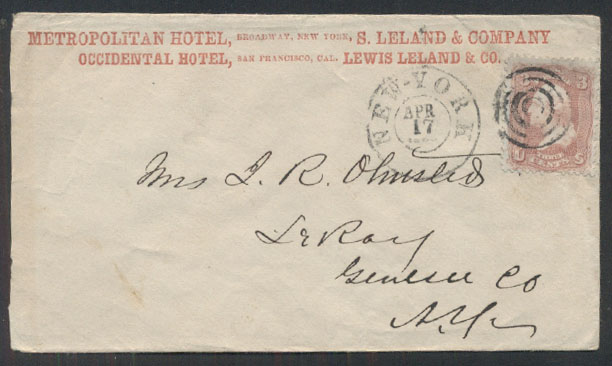 METROPOLITAN HOTEL, BROADWAY, NEW YORK, S. LELAND & COMPANY
OCCIDENTAL HOTEL, SAN FRANCISCO, CAL. LEWIS LELAND & CO.
NEW-YORK
APR
17
3
U S
THREE
CENTS
Mrs J. R. Olmsted
LeRoy
Genesee Co
N.Y.